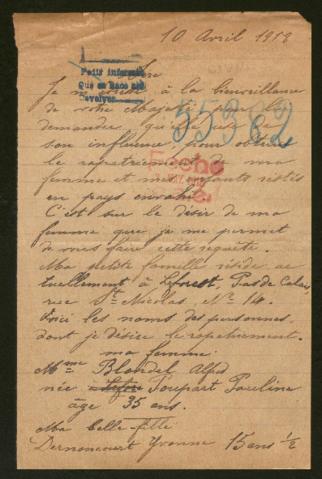 10 Avril 1918
Sire
Petit informe
Que se hace
devolver
Je m'adresse à la bienveillance
de votre Majesté pour lui
demander, qu'il use de
son influence, pour obtenir
le rapatriement de ma
femme et mes enfants restés
en pays envahi.
55382
C'est sur le désir de ma
femme que je me permet
de vous faire cette requête.
Ma petite famille réside ac
tuellement à Leforest, Pas de Calais,
rue St Nicolas, No 14.
Voici les noms des personnes
dont je désire le rapatriement.
ma femme.
Mme Blondel Alfred
née Poupart Pauline
âge 35 ans.
Ma belle fille
Dernoncourt Yvonne 15 ans 1/2